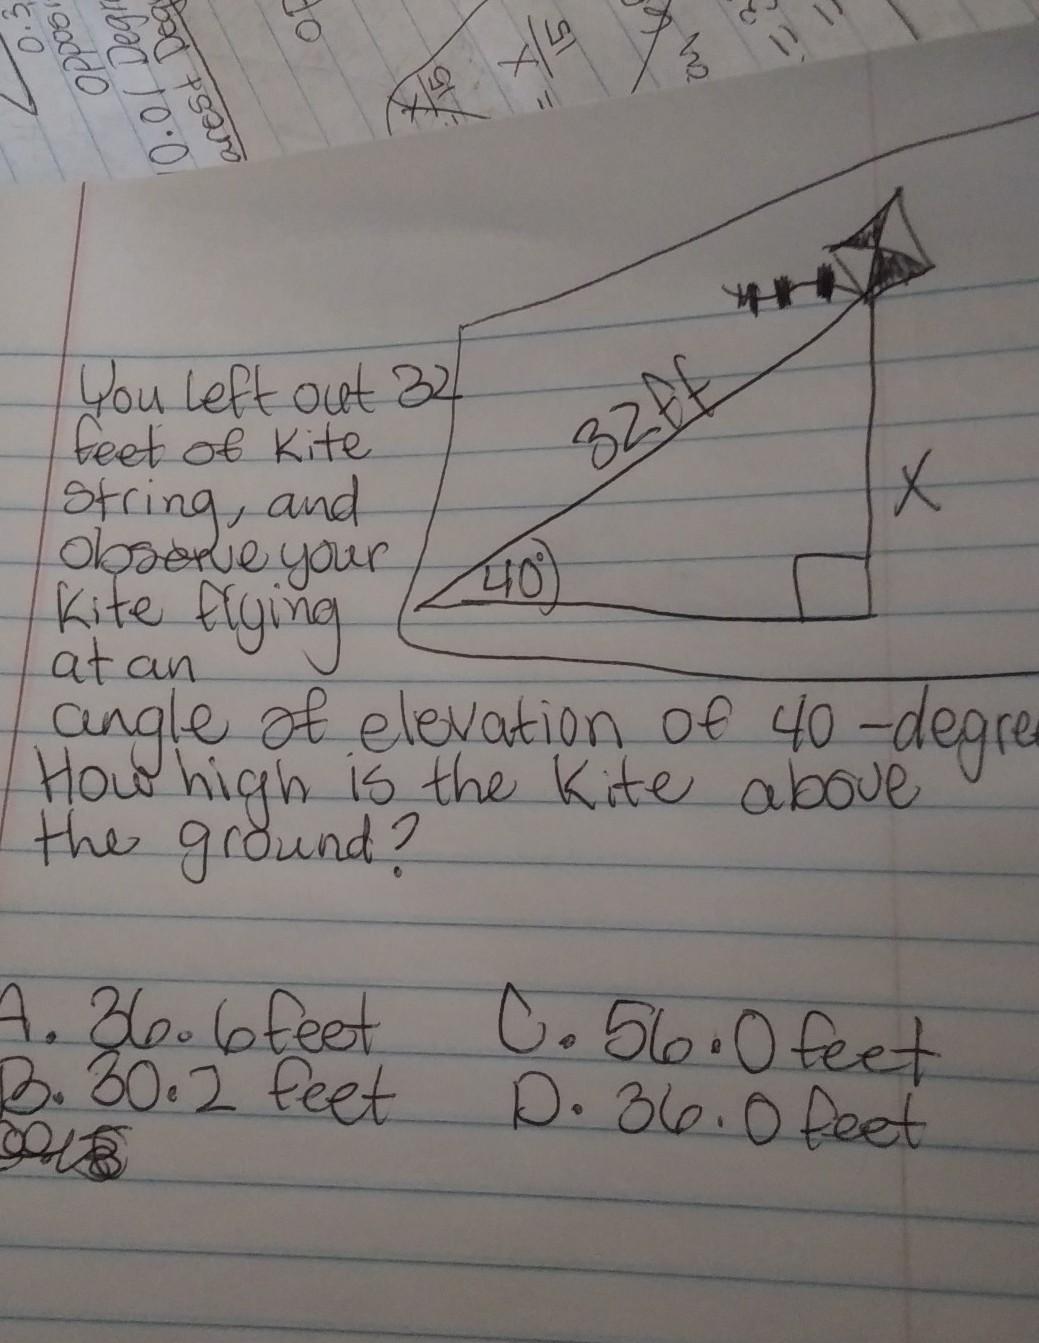 15
X
=
15
X
You left out 32
feet of kite
string, and
observe your
kite flying
at an
angle of elevation of 40-degre
How high is the kite above
the ground?
32ft
40°
X
A. 36.6 feet
B. 30.2 feet
C. 56.0 feet
D. 36.0 feet